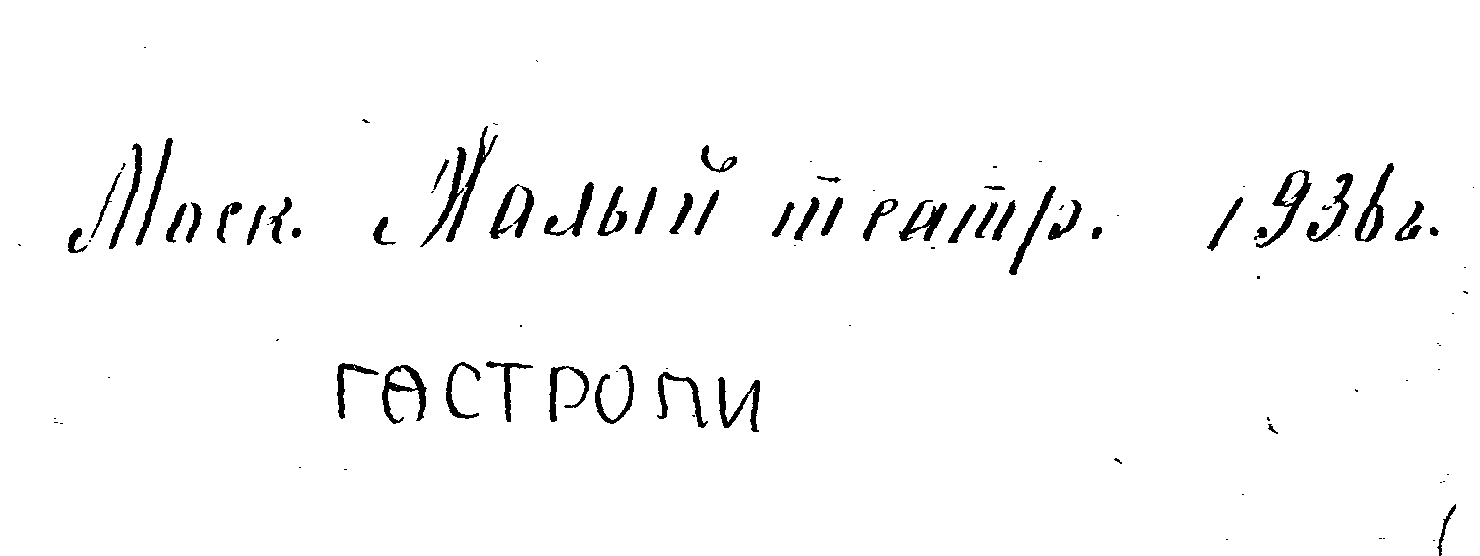 Моск. Малый театр. 1936г.
ГАСТРОЛИ